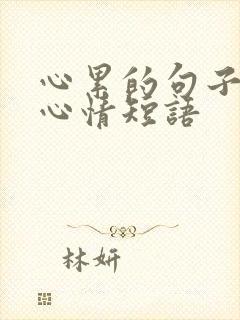 心累的句子
心情短語
林妍